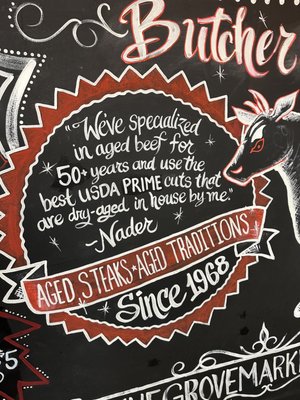 Butcher
"We've specialized
in aged beef for
50+ years and use the
best USDA PRIME cuts that
are dry-aged in house by me."
-Nader
AGED STEAKS★AGED TRADITIONS
Since 1968